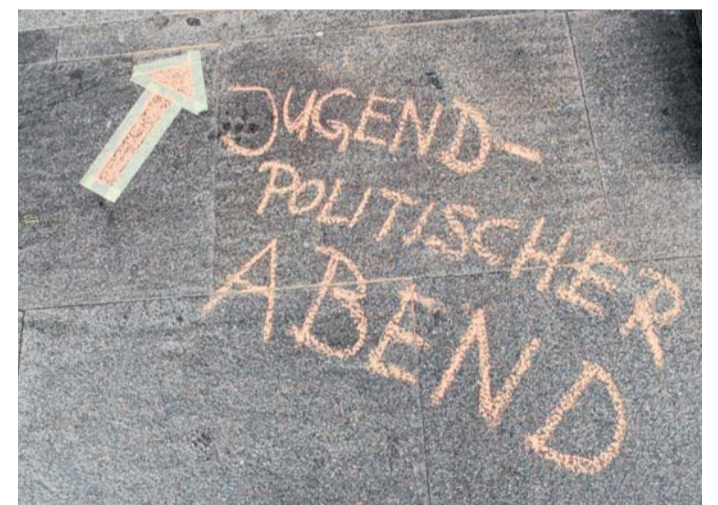 JUGEND-
POLITISCHER
ABEND